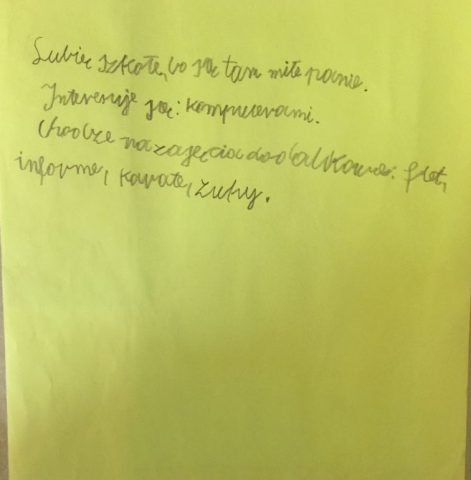 Lubię szkołę, bo są tam miłe panie.
Interesuje się: komputerami.
Chodzę na zajęcia dodatkowe: flet,
informe, karate, zuhy.